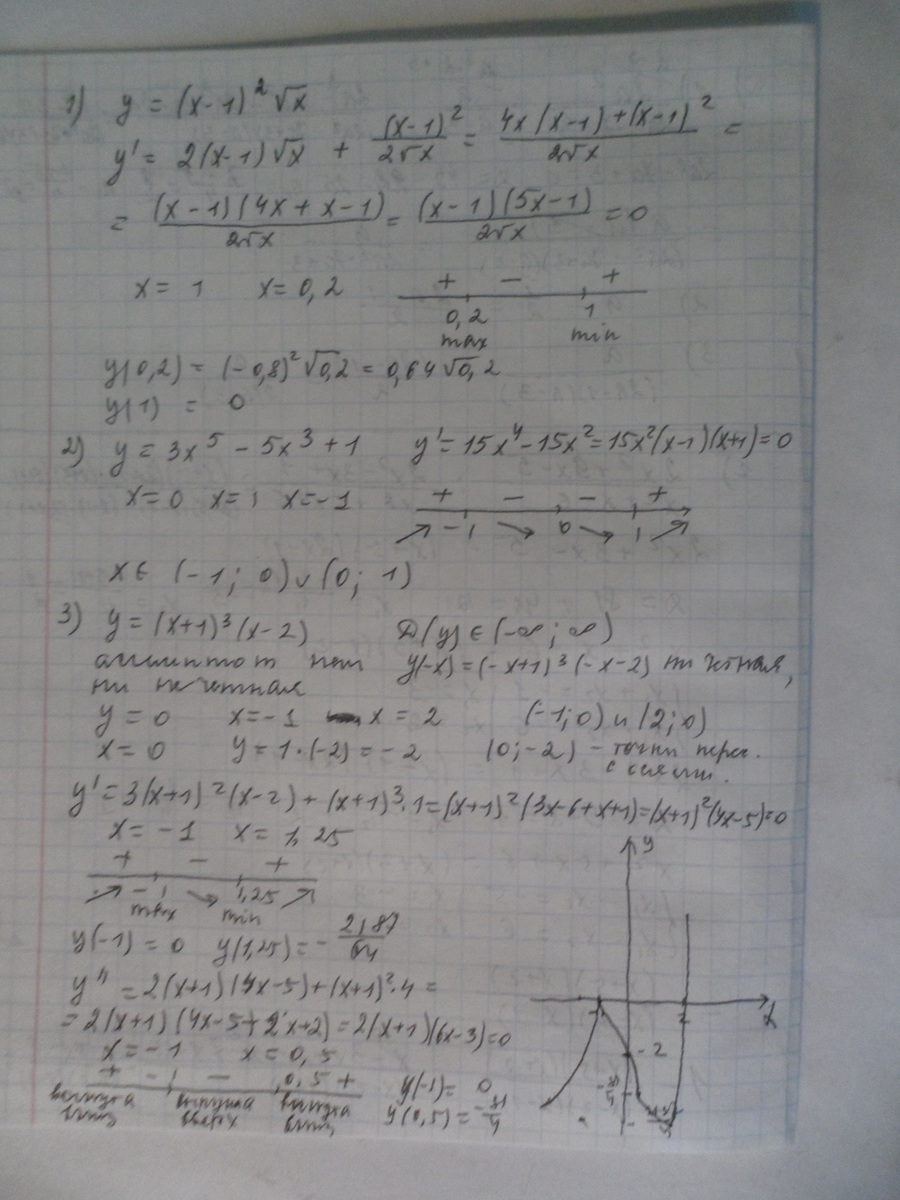 1) y = (x-1)² √x
y' = 2(x-1)√x + (x-1)²/2√x = 4x(x-1)+(x-1)²/2√x =
= (x-1)(4x+x-1)/2√x = (x-1)(5x-1)/2√x = 0
x = 1 x = 0,2 + - +
0,2 1
max min
y(0,2) = (-0,8)² √0,2 = 0,64√0,2
y(1) = 0
2) y = 3x⁵ - 5x³ + 1 y' = 15x⁴ - 15x² = 15x²(x-1)(x+1) = 0
x=0 x=1 x=-1 + - - +
↗ -1 ↘ 0 ↘ 1 ↗
x ∈ (-1; 0) ∪ (0; 1)
3) y = (x+1)³(x-2) D(y) ∈ (-∞; ∞)
асимптот нет y(-x) = (-x+1)³(-x-2) ни четная,
ни нечетная
y = 0 x = -1 x = 2 (-1; 0) и (2; 0)
x = 0 y = 1·(-2) = -2 (0; -2) - точки перес.
с осями.
y' = 3(x+1)²(x-2) + (x+1)³·1 = (x+1)²(3x-6+x+1) = (x+1)²(4x-5) = 0
x = -1 x = 1,25
+ - +
↗ -1 ↘ 1,25 ↗
max min
y(-1) = 0 y(1,25) = - 2187/64
y'' = 2(x+1)(4x-5) + (x+1)²·4 =
= 2(x+1)(4x-5+2x+2) = 2(x+1)(6x-3) = 0
x = -1 x = 0,5
+ -1 - 0,5 +
выпукла выпукла выпукла
вниз вверх вниз
y(-1) = 0
y(0,5) = -81/4
y
x
-1
2
-2
-81/4